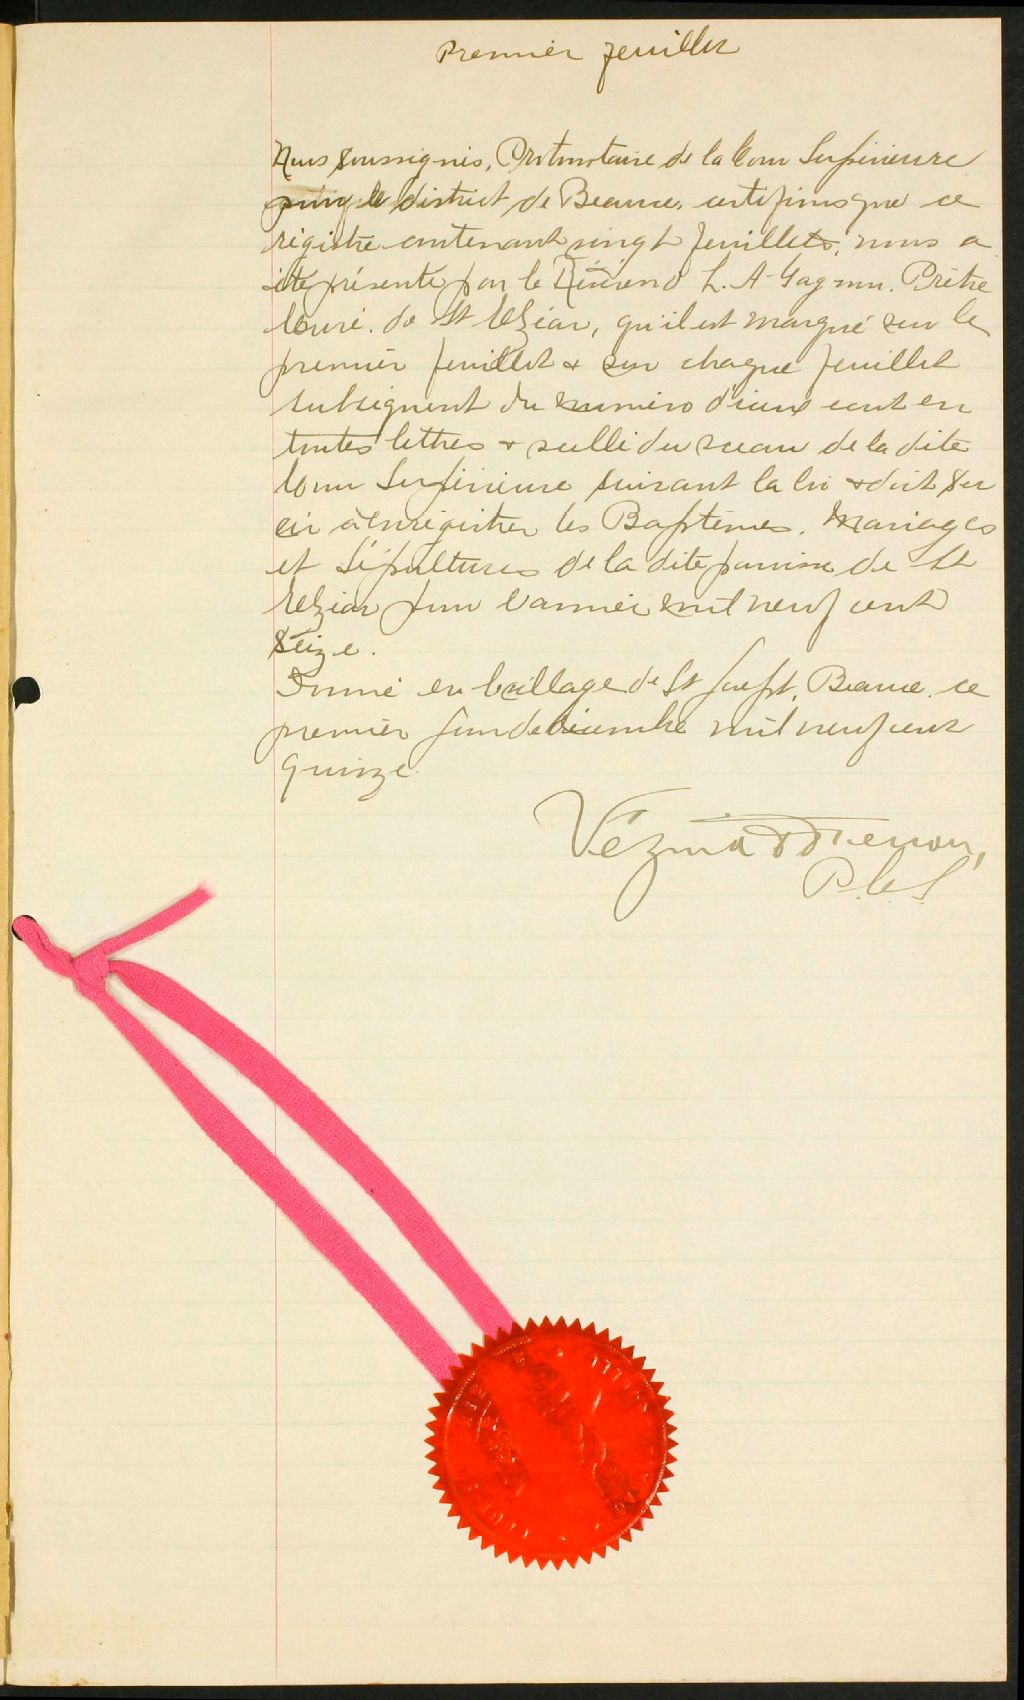 Premier feuillet
Nous soussignés, Protonotaire de la Cour Supérieure
pour le district de Beauce, certifions que ce
régistre contenant vingt feuillets, nous a
été présenté par le Révérend L. A. Gagnon, Prêtre
Curé, de St Elzéar, qu'il est marqué sur le
premier feuillet & sur chaque feuillet
subséquent du numéro d'iceux écrit en
toutes lettres & scellé du sceau de la dite
Cour Supérieure suivant la loi & doit ser
vir à enrégistrer les Baptêmes, Mariages
et Sépultures de la dite paroisse de St
Elzéar pour l'année mil neuf cent
seize.
Donné en le village de St Joseph, Beauce, ce
premier jour de décembre mil neuf cent
quinze.
Vézina &
P.C.S.